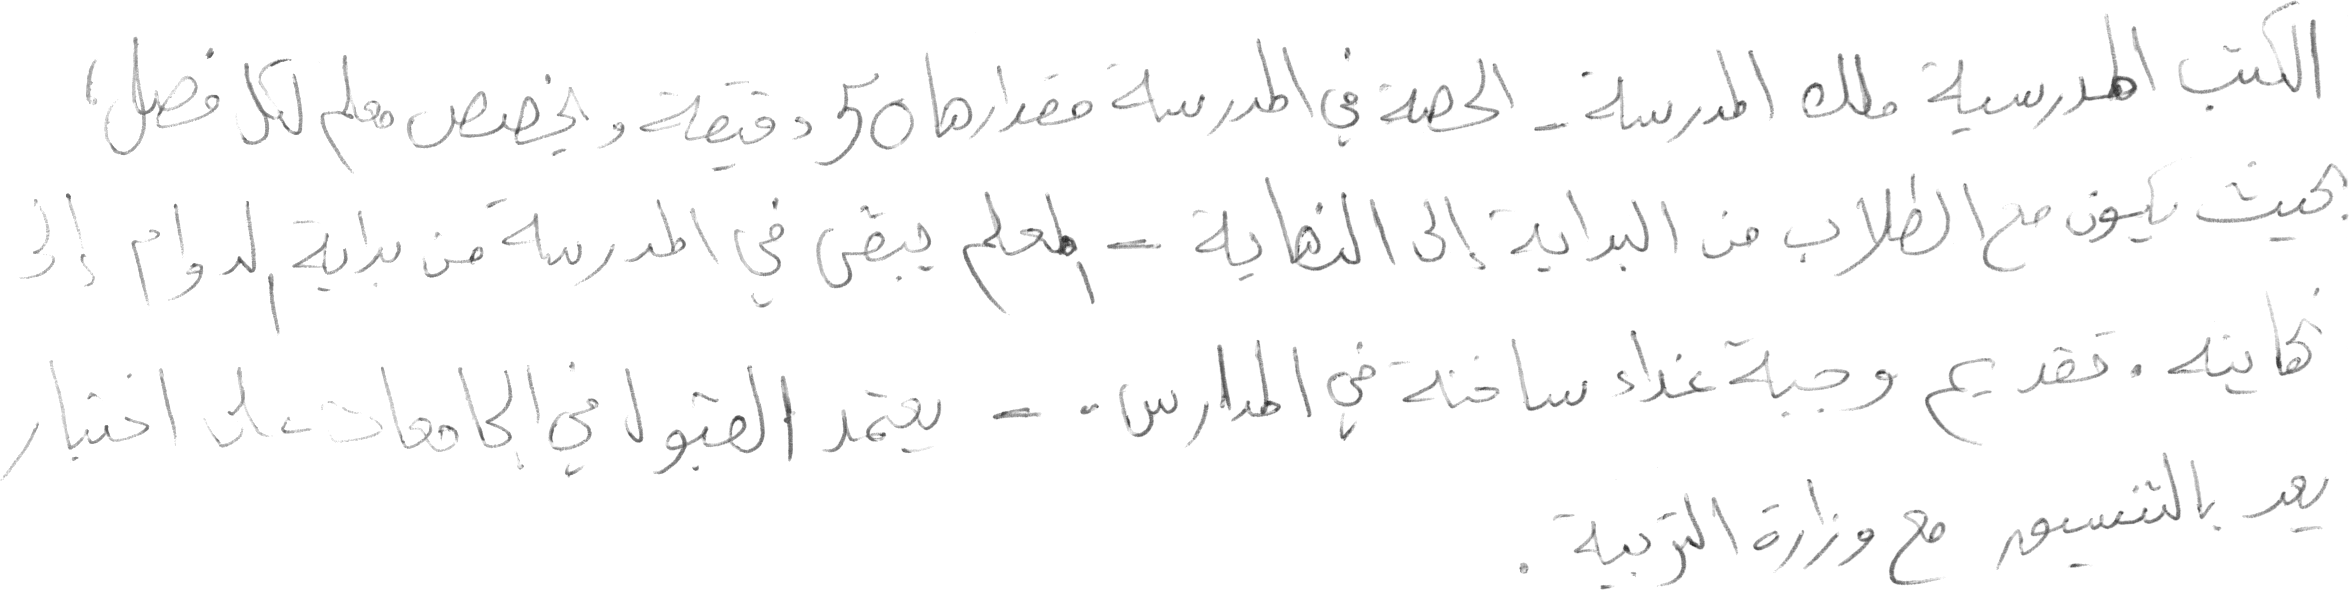 الكتب المدرسية ملك المدرسة - الحصة في المدرسة مقدارها 50 دقيقة ويخصص معلم لكل فصل؛
بحيث يكون مع الطلاب من البداية إلى النهاية - المعلم يبقى في المدرسة من بداية الدوام إلى
نهايته. تقديم وجبة غداء ساخنة في المدارس. - يعتمد القبول في الجامعات على اختبار
يعد بالتنسيق مع وزارة التربية.